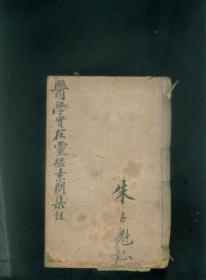 醫學實在靈樞素問集註
朱占魁